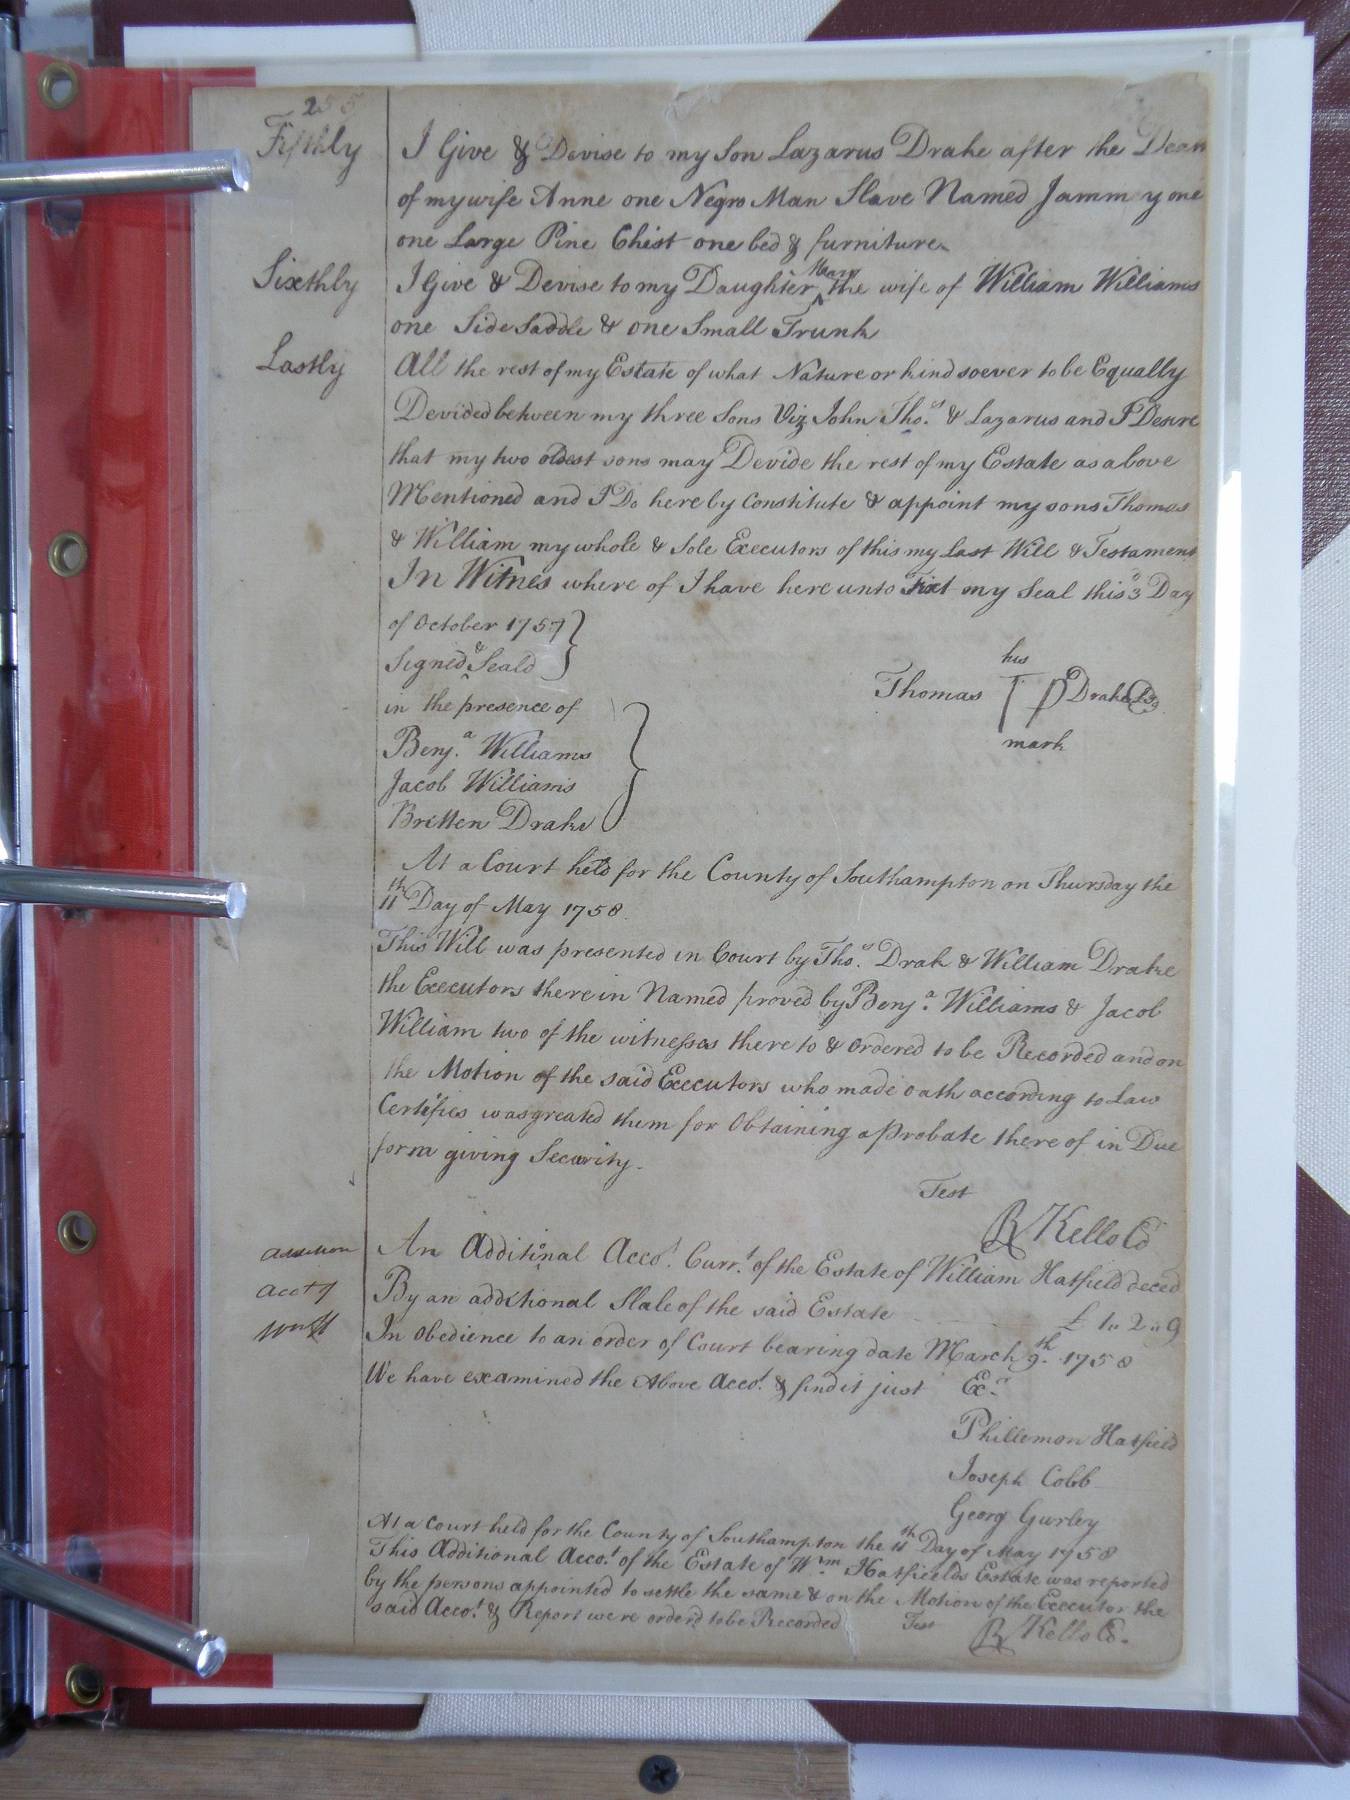 255
Fifthly I Give & Devise to my Son Lazarus Drake after the Deah
of my wife Anne one Negro Man Slave Named Jammy one
one Large Pine Chist one bed & furniture
Sixthly I Give & Devise to my Daughter Mary the wife of William Williams
one Side Saddle & one Small Trunk
Lastly All the rest of my Estate of what Nature or kind soever to be Equally
Devided between my three Sons Viz John Thos. & Lazarus and I Desire
that my two oldest sons may Devide the rest of my Estate as above
Mentioned and I Do hereby Constitute & appoint my sons Thomas
& William my whole & Sole Executors of this my Last Will & Testament
In Witnes where of I have here unto Fixt my Seal this 3 Day
of October 1757
Signed & Seald
in the presence of
his
Thomas T D Drake
mark
Benja. Williams
Jacob Williams
Britten Drake
At a Court held for the County of Southampton on Thursday the
11th Day of May 1758
This Will was presented in Court by Thos. Drak & William Drake
the Executors therein Named proved by Benja. Williams & Jacob
William two of the witnesses there to & ordered to be Recorded and on
the Motion of the said Executors who made oath according to Law
Certifies was greated them for Obtaining a Probate there of in Due
form giving Security.
Test
R Kello Cl
An Additional Accot. Currt. of the Estate of William Hatfield deced
acct of By an additional Sale of the said Estate £ 1 " 2 " 9
In Obedience to an order of Court bearing date March 9th 1758
We have examined the Above Accot. & find it just Ex.
Phillemon Hatfield
Joseph Cobb
Georg Gurley
At a Court held for the County of Southampton the 11th Day of May 1758
This Additional Accot. of the Estate of Wm. Hatfields Estate was reported
by the persons appointed to settle the same & on the Motion of the Executor the
said Accot. & Report were orderd to be Recorded Test R Kello Cl.